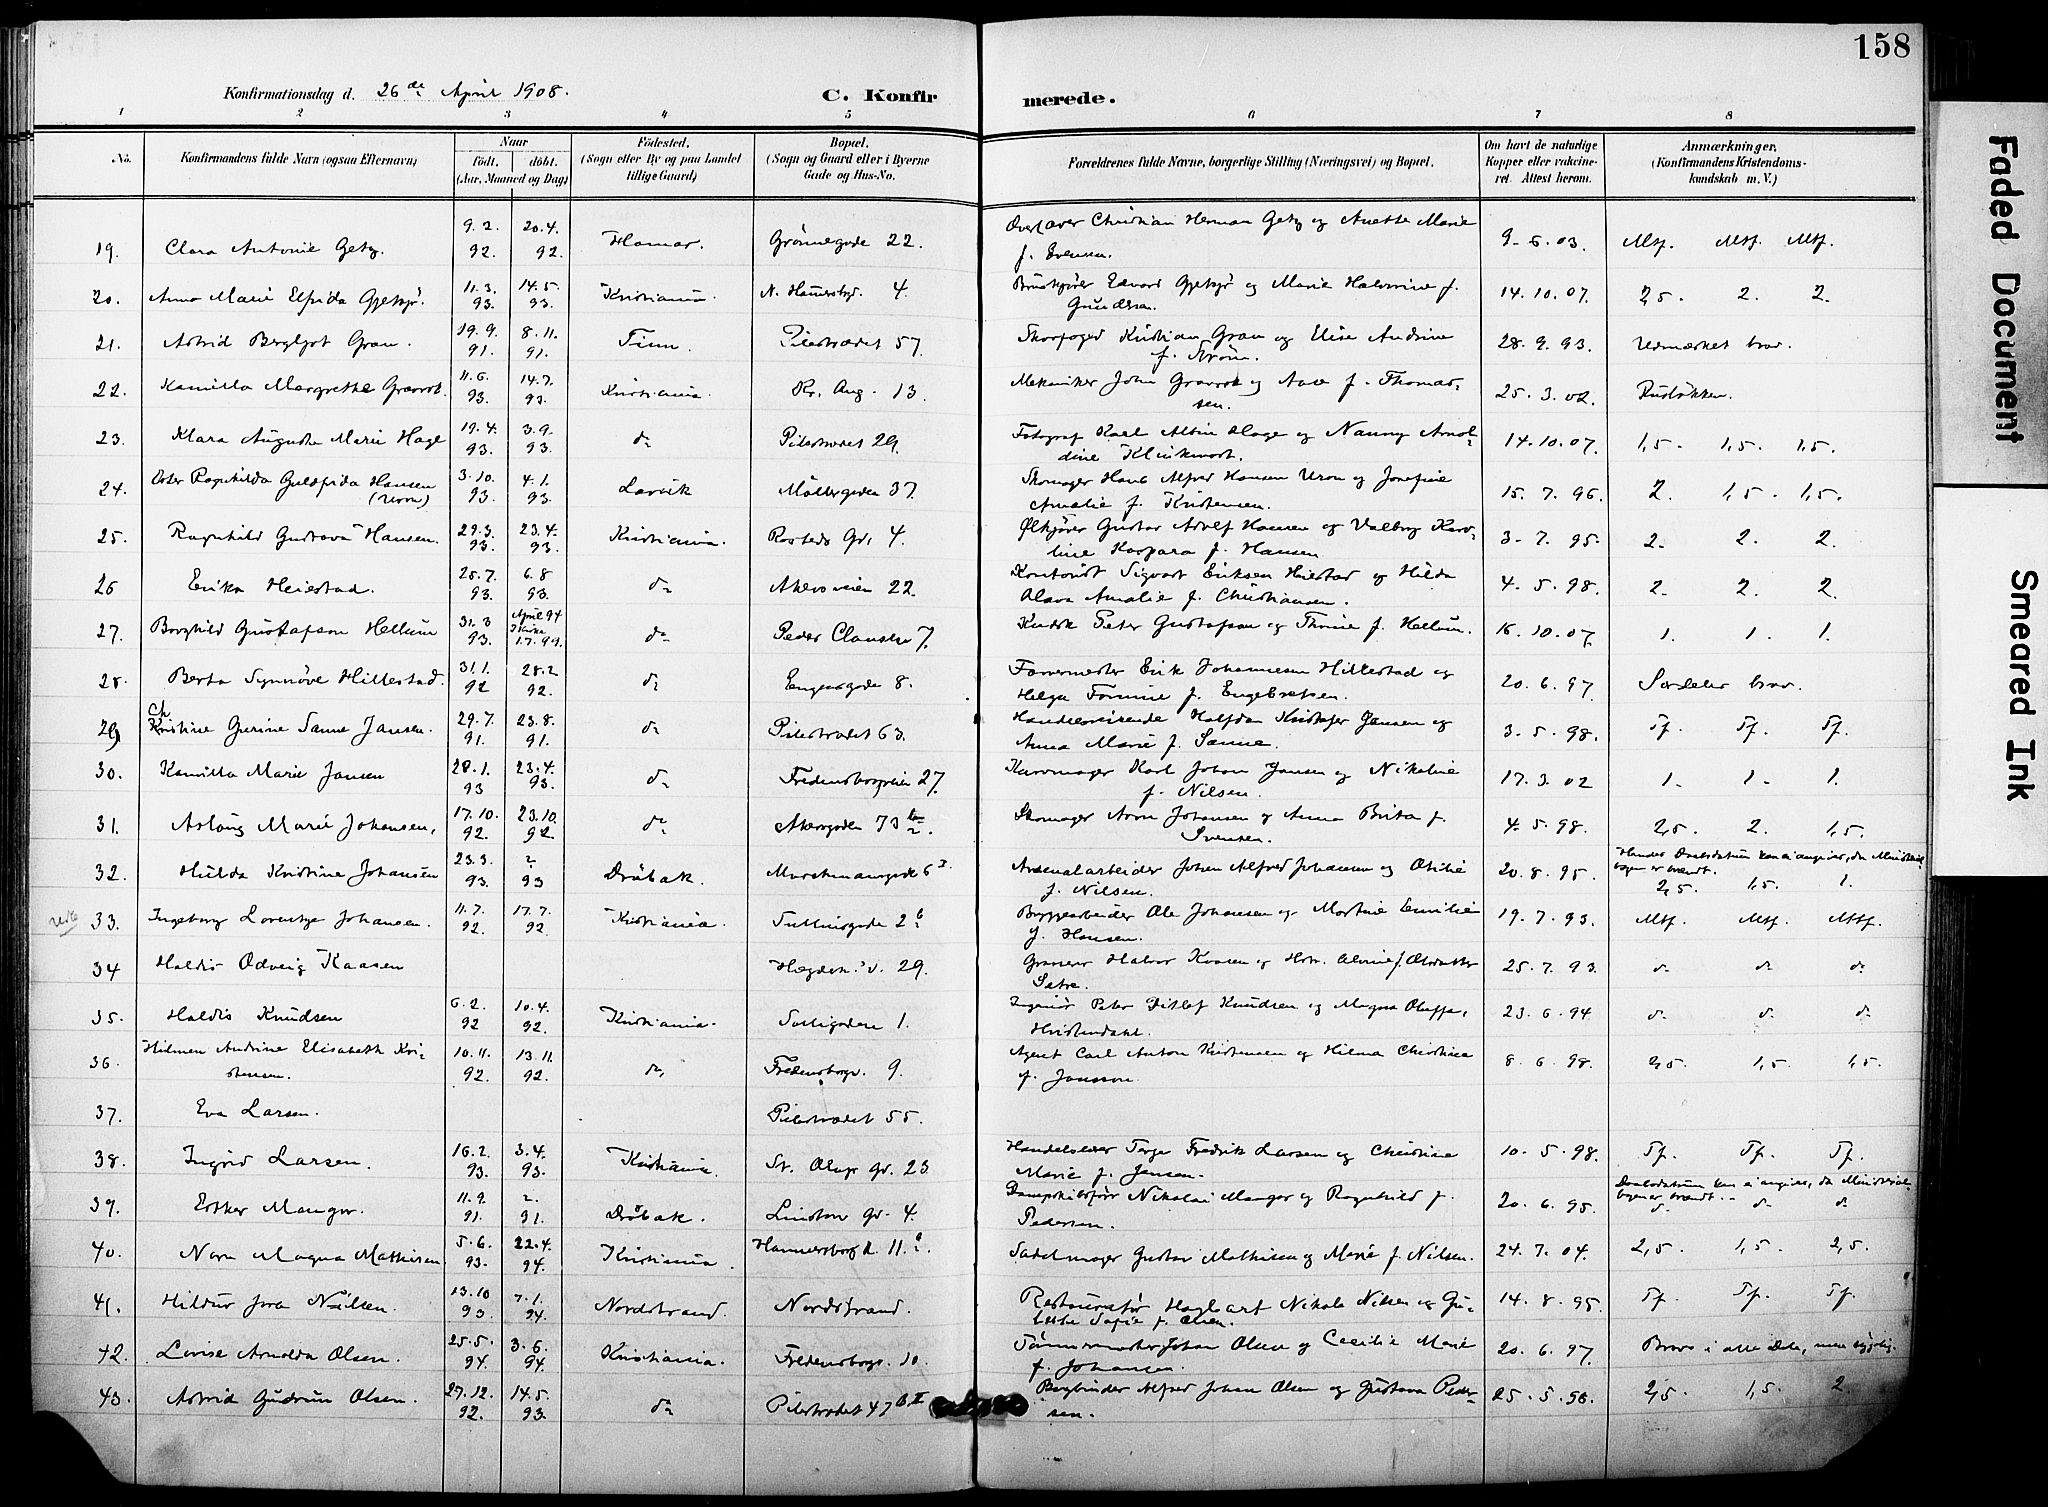 158
Konfirmationsdag d. 26de April 1908.
C. Konfirmerede.
1 2 3 4 5 6 7 8
No.
Konfirmandens fulde Navn (ogsaa Efternavn)
Naar
født. døbt.
(Aar, Maaned og Dag)
Fødested.
(Sogn eller By og paa Landet
tillige Gaard)
Bopæl.
(Sogn og Gaard eller i Byerne
Gade og Hus-No.
Forældrenes fulde Navne, borgerlige Stilling (Næringsvei) og Bopæl.
Om havt de naturlige
Kopper eller vaccine-
ret. Attest herom.
Anmærkninger.
(Konfirmandens Kristendoms-
kundskab m. V.)
19. Clara Antonie Getz. 9.2.92. 20.4.92. Hamar. Grønnegade 22. Christian Herman Getz og Anette Marie f. Evensen. 9-6.03. Mtf. Mtf. Mtf.
20. Anna Marie Elfrida Gjetsjø. 11.3.93. 14.5.93. Kristiania. 4. Edvard Gjetsjø og Marie f. Gundersen. 14.10.07. 2,5. 2. 2.
21. Astrid Bergljot Gran. 19.9.91. 8.11.91. Pilestrædet 57. Skovfoged Kristian Gran og Elise Andrine f. 28.9.93. Udmærket brav.
22. Kamilla Margrethe Gravrok. 11.6.93. 14.7.93. Kristiania. Kr. Aug. 13. Mekaniker John Gravrok og Aase f. Thomas-
sen. 25.3.02. Ruseløkken.
23. Klara Augusta Marie Hage 19.4.93. 3.9.93. do Pilestrædet 29. Fotograf Karl Albin Hage og Nanny Arnol-
dine Klinkmort. 14.10.07. 1,5. 1,5. 1,5.
24. Ester Ragnhilda Guldfrida Hansen
(Uron) 3.10.93. 4.1.93. Larvik Møllergaden 37. Skomager Hans Alfred Hansen Uron og Josefine
Amalie f. Kristensen. 15.7.96. 2. 1,5. 1,5.
25. Ragnhild Gustava Hansen. 29.3.93. 23.4.93. Kristiania. Rosteds Gd. 4. Ølkjører Gustav Adolf Hansen og Valborg Karo-
line Kaspara f. Hansen 3.7.95. 2. 2. 2.
26 Erika Heiestad. 25.7.93. 6.8.93. do Akersveien 22. Kontorist Sigvart Eriksen Heiestad og Hilda
Olava Amalie f. Christiansen. 4.5.98. 2. 2. 2.
27. Borghild Gustafson Hellum 31.3.93. April 94 1.7.94. do Peder Clausens 7. Kudsk Peter Gustafson og Thrine f. Hellum. 16.10.07. 1. 1. 1.
28. Berta Synnøve Hillestad. 31.1.92 28.2.92. do Engensgade 8. Farvermester Erik Johannesen Hillestad og
Helga Formine f. Engebretsen. 20.6.97. Særdeles brav.
29 Ch
Kristine Gurine Sanne Jansen. 29.7.91. 23.8.91. do Pilestrædet 63. Handelsreisende Halfdan Kristofer Jansen og
Anna Marie f. Sanne. 3.5.98. Tf. Tf. Tf.
30. Kamilla Marie Jansen 28.1.93 23.4.93. do Fredensborgveien 27. Kurvmager Karl Johan Jansen og Nikoline
f. Nilsen. 17.3.02 1. 1. 1.
31. Aslaug Marie Johansen. 17.10.92. 23.10.92. do Akersgaden 73 b. Skomager Arne Johansen og Anna Brita f.
Svensen. 4.5.98. 2,5. 2. 1,5.
32. Hulda Kristine Johansen 23.3.93. ? 93 Drøbak. 6 Arsenalarbeider Johan Alfred Johansen og Otilie
f. Nilsen. 20.8.95. Hendes Daabsdatum kan ei angives, da Ministerial-
bogen er brændt.
2,5. 1,5. 1.
33. Ingeborg Lorentze Johansen. 11.7.92. 17.7.92. Kristiania. Tullinsgade 2 b Byggearbeider Ole Johansen og Martine Emilie
f. Hansen. 19.7.93. Mtf. Mtf. Mtf.
34 Haldis Odveig Kaasen Hægdeh.v. 29. Halvor Kaasen og f. Olsdatter
Sætre. 25.7.93. do do do
35. Haldis Knudsen 6.2.92 10.4.92. Kristiania. Solligaden 1. Ingeniør Peter Ditlef Knudsen og Magna Oluffa,
Hvistendahl. 23.6.94. do do do
36. Hilmen Andrine Elisabeth Kri-
stensen. 10.11.92. 13.11.92. do Fredensborgv. 9. Agent Carl Anton Kristensen og Hilma Christina
f. Jonsson. 8.6.98. 2,5. 1,5. 1,5.
37. Eva Larsen. Pilestrædet 55.
38. Ingrid Larsen. 16.2.93. 3.4.93. Kristiania. St. Olafs gd. 23 Terje Fredrik Larsen og Christine
Marie f. Jensen. 10.5.98. Tf. Tf. Tf.
39. Ester Manger. 11.9.91. ? 91. Drøbak. Lindstøw gd. 4. Dampskibsfører Nikolai Manger og Ragnhild f.
Pedersen. 20.6.95. Daabsdatum kan ei angives, da Ministerial-
bogen er brændt.
do do do
40. Nora Magna Mathisen 5.6.93. 22.4.94. Kristiania. 11. Sadelmager Gustav Mathisen og Marie f. Nilsen. 24.7.04. 2,5. 1,5. 2,5.
41. Hildur Jora Nilsen. 13.10.93. 7.1.94. Nordstrand. Nordstrand. Restauratør Hagbart Nikolai Nilsen og Gu-
Sofie f. Olsen. 14.8.95. Tf. Tf. Tf.
42. Lovise Arnolda Olsen. 25.5.94. 3.6.94. Kristiania. Fredensborgv. 10. Tømmermester Johan Olsen og Cecilie Marie
f. Johansen. 20.6.97. Brav i alle Dele, men sygelig.
43. Astrid Gudrun Olsen. 27.12.92. 14.5.93. do Pilestrædet 47 b II Bogbinder Alfred Johan Olsen og Gustava Peder-
sen. 25.5.98. 2,5. 1,5. 2.
Faded Document
Smeared Ink